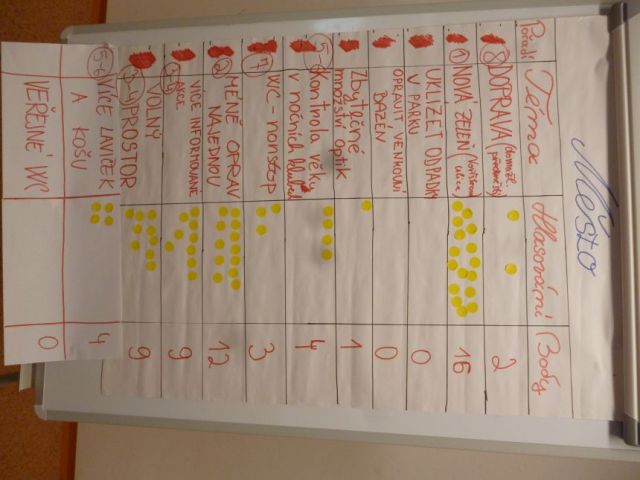 Město
Pořadí Téma Hlasování Body
8 DOPRAVA 2
1 NOVÁ ZELEŇ ulice 16
UKLÍZET ODPADKY
V PARKU 0
OPRAVIT VENKOVNÍ
BAZÉN 0
Zbytečné
množství optik 1
5 Kontrola věku
v nočních klubech 4
7 WC - nonstop 3
2 MÉNĚ OPRAV
NAJEDNOU 12
3-4 AKCE
VÍCE INFORMOVANÉ 9
3-4 VOLNÝ
PROSTOR 9
5-6 VÍCE LAVIČEK
A KOŠŮ 4
VEŘEJNÉ WC 0